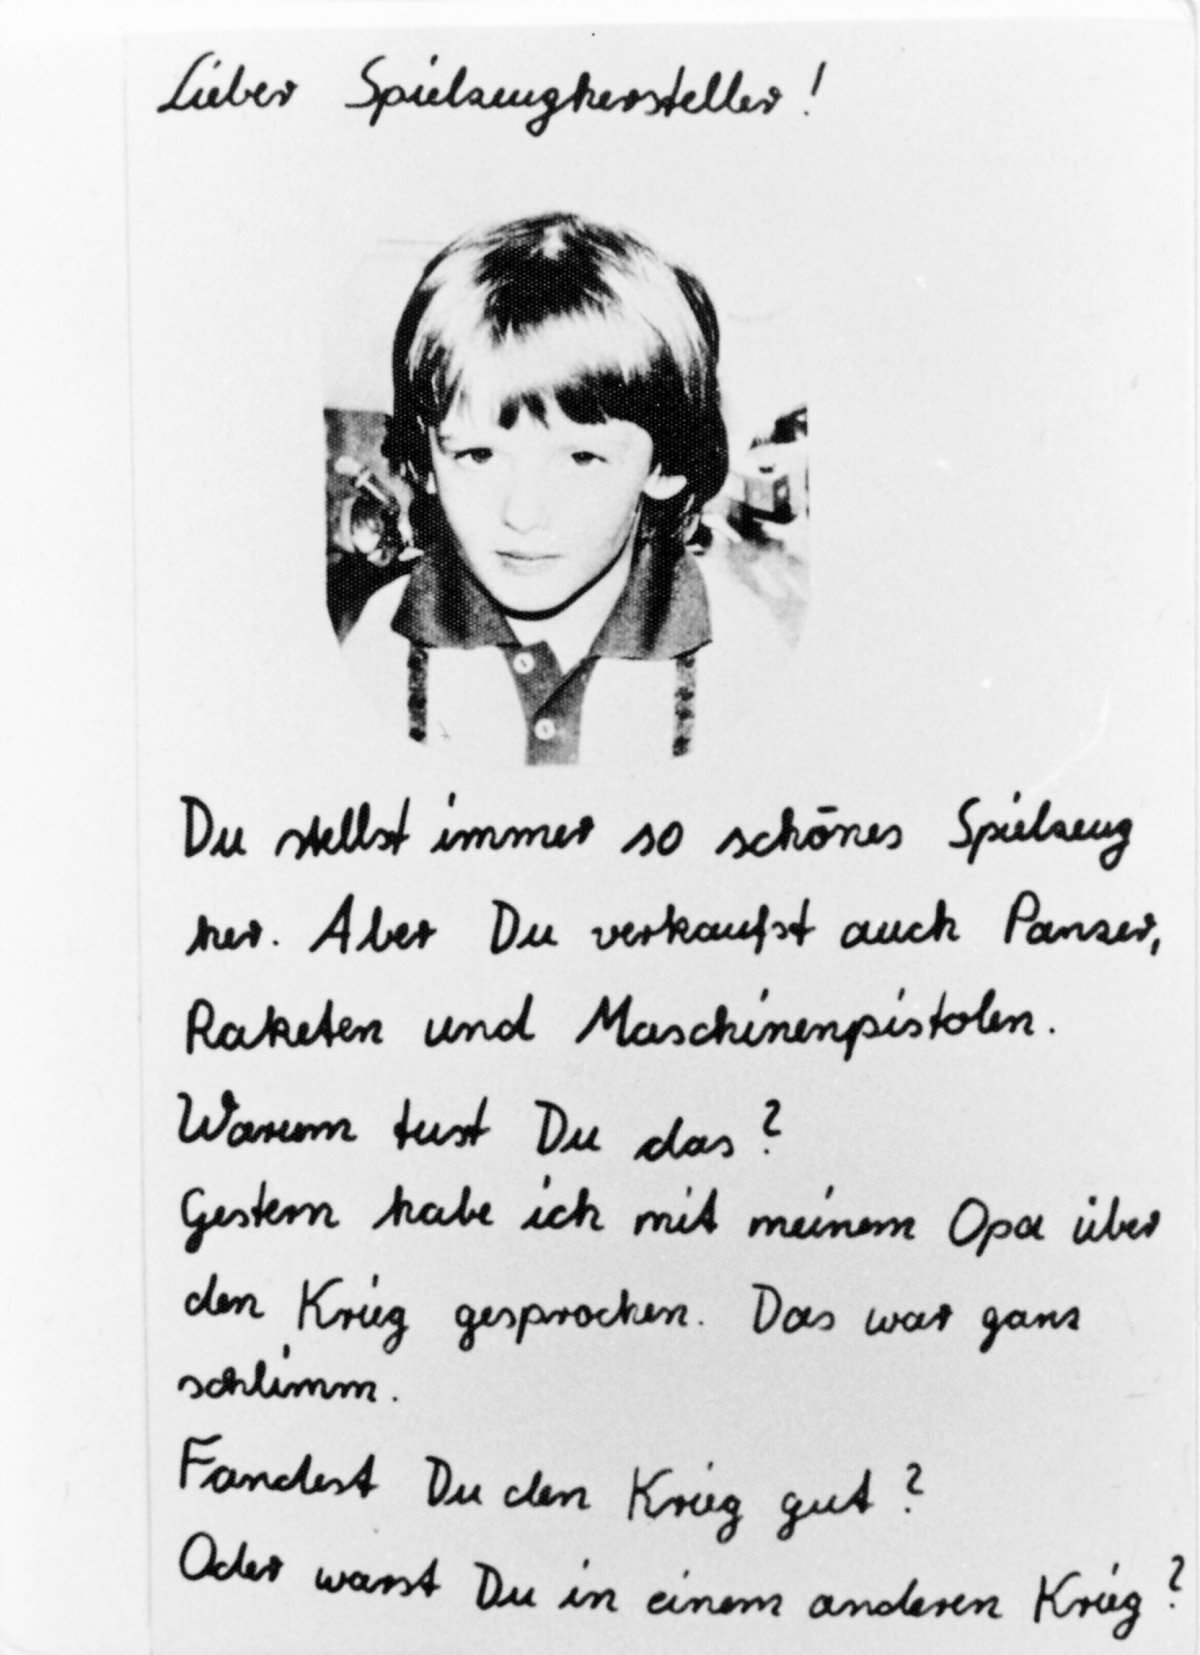 Lieber Spielzeughersteller!
Du stellst immer so schönes Spielzeug
her. Aber Du verkaufst auch Panzer,
Raketen und Maschinenpistolen.
Warum tust Du das?
Gestern habe ich mit meinem Opa über
den Krieg gesprochen. Das war ganz
schlimm.
Fandest Du den Krieg gut?
Oder warst Du in einem anderen Krieg?